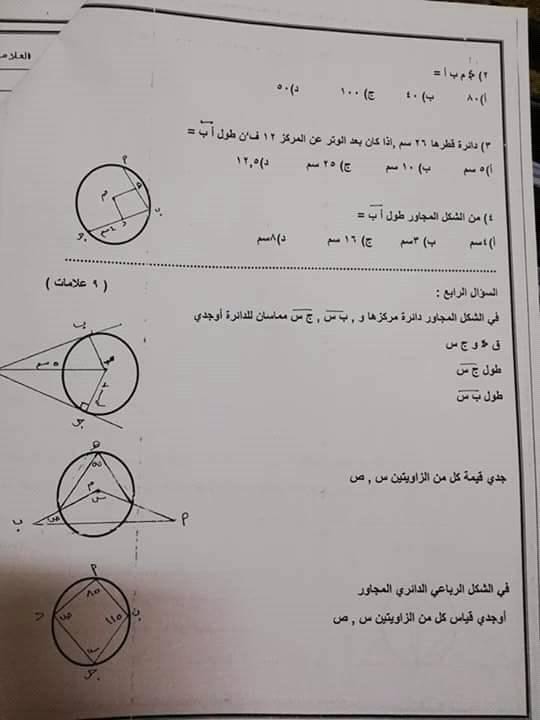 العلاما
٢) ∢ م ب أ =
أ) ٨٠ ب) ٤٠ ج) ١٠٠ د) ٥٠
٣) دائرة قطرها ٢٦ سم ,اذا كان بعد الوتر عن المركز ١٢ ف'ن طول أ ب =
أ) ٥ سم ب) ١٠ سم ج) ٢٥ سم د) ١٢,٥
٤) من الشكل المجاور طول أ ب =
أ) ٤سم ب) ٣سم ج) ١٦ سم د) ٨سم
السؤال الرابع :
( ٩ علامات )
في الشكل المجاور دائرة مركزها و , ب س , ج س مماسان للدائرة أوجدي
ق ∢ و ج س
طول ج س
طول ب س
٥ سم
جدي قيمة كل من الزاويتين س , ص
م
س
ص
ب
٥٥
في الشكل الرباعي الدائري المجاور
أوجدي قياس كل من الزاويتين س , ص
٨٥
١١٥
ص
س